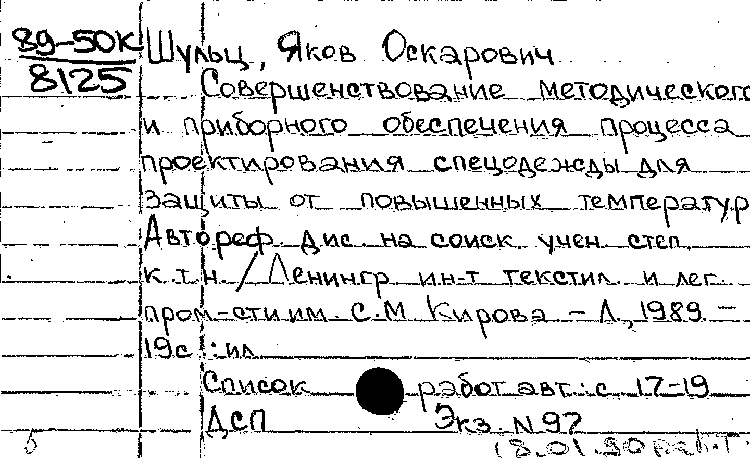 89-50К Шульц, Яков Оскарович
8125 Совершенствование методического
и приборного обеспечения процесса
проектирования спецодежды для
защиты от повышенных температур
Автореф. дис. на соиск. учен. степ.
к.т.н. / Ленингр. ин-т текстил. и лег.
пром-сти им. С.М. Кирова – Л., 1989 –
19с.: ил
Список работ авт.: с. 17-19
ДСП Экз. N 97
18.01.90